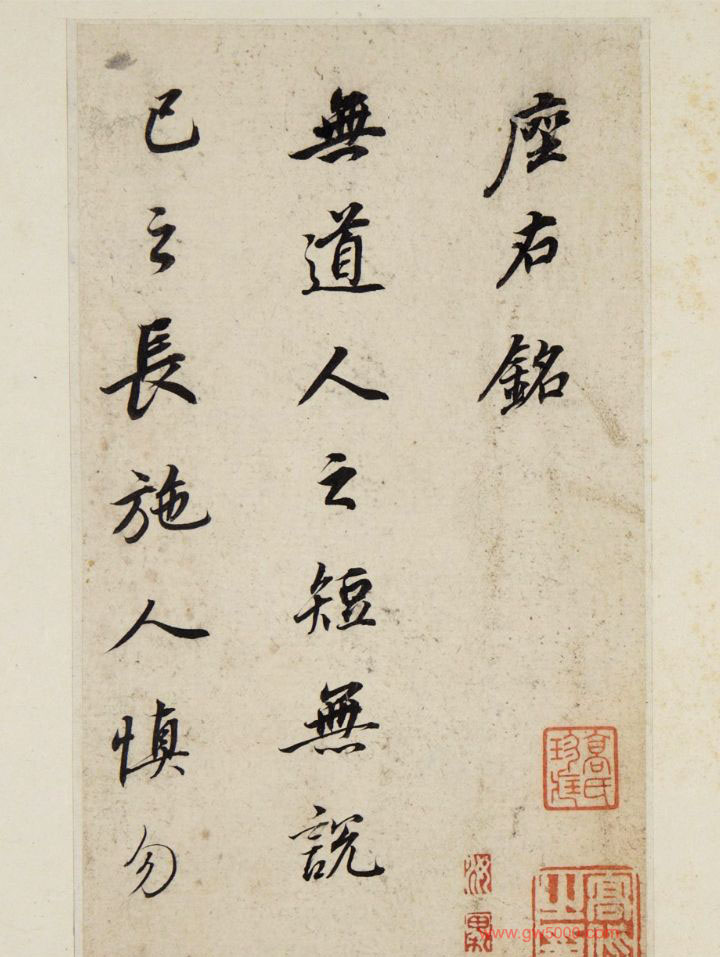 座右銘
無道人之短無説
已之長施人慎勿
高氏
www.gw5000.com